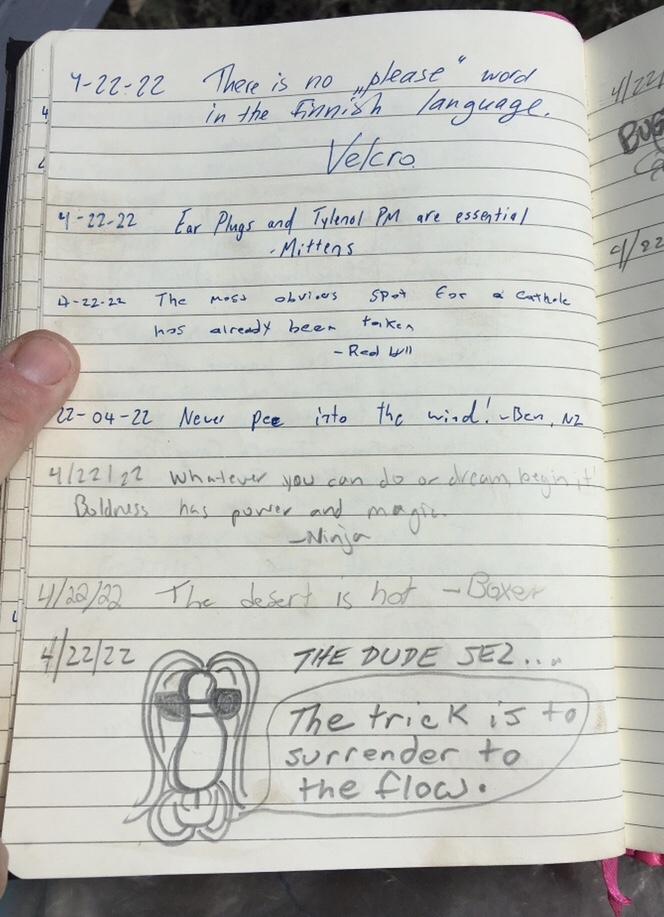 4-22-22 There is no „please" word
in the finnish language.
Velcro
4-22-22 Ear Plugs and Tylenol PM are essential
-Mittens
4-22-22 The most obvious spot for a cathole
has already been taken
-Red Bull
22-04-22 Never pee into the wind! -Ben, NZ
4/22/22 Whatever you can do or dream, begin it!
Boldness has power and magic.
-Ninja
4/22/22 The desert is hot -Boxer
4/22/22 THE DUDE SEZ....
The trick is to
surrender to
the flow.
4/22/
BUG
4/22